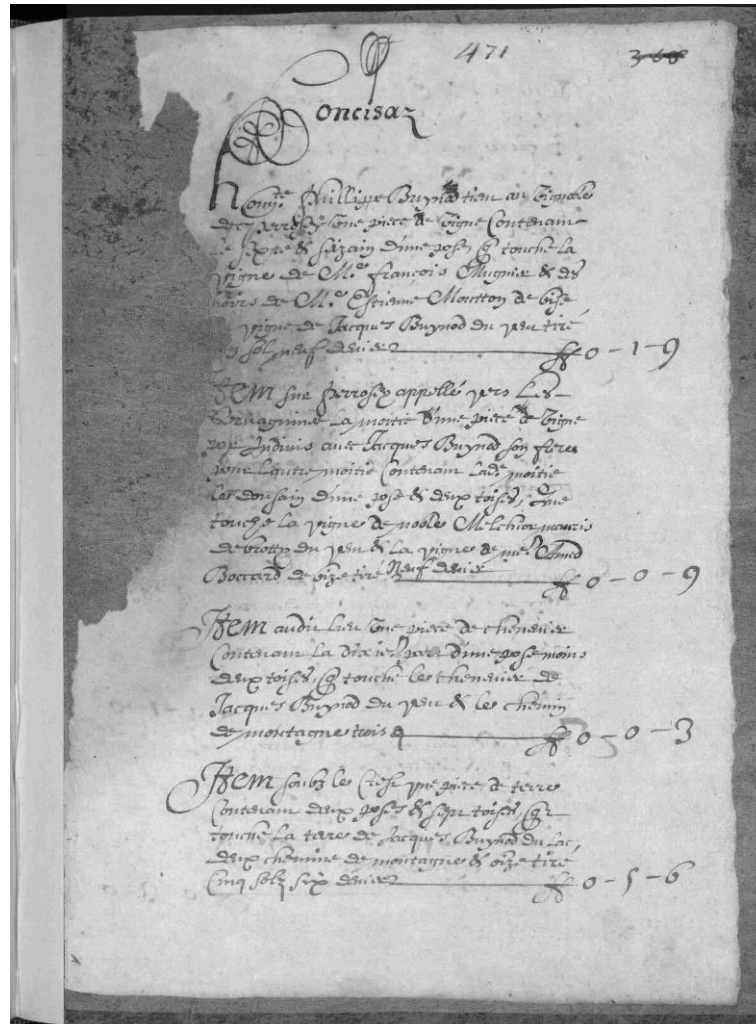 471 368
Concisaz
Hono.te Phillippe Buynod tient au vignoble
de Perrosey une piece de vigne Contenant
le sixte & sizain d'une pose, q touche la
vigne de M.e françois Mugnier & des
hoirs de M.e Estienne Moutton de bise
la vigne de Jacques Buynod du vent tire
un solz neuf deniers ff 0 - 1 - 9
Item sur Perrosey appellé vers Les
la moitié d'une piece de vigne
par Indivis avec Jacques Buynod son frere
pour l'autre moitié Contenant lad.e moitié
le dousain d'une pose & deux toises, Que
touche la vigne de noble Melchior
du vent & la vigne de
Boccard de bize tire Neuf denier ff 0 - 0 - 9
Item audit lieu une piece de chenevier
Contenant la dixie part d'une pose moins
deux toises, q touche le chenevier de
Jacques Buynod du vent & le chemin
de montagne trois d ff 0 - 0 - 3
Item soubz le Crest une piece de terre
Contenant deux poses & sept toises, q
touche la terre de Jacques Buynod du Lac,
deux chemins de montagne & bize tire
Cinq solz six deniers ff 0 - 5 - 6